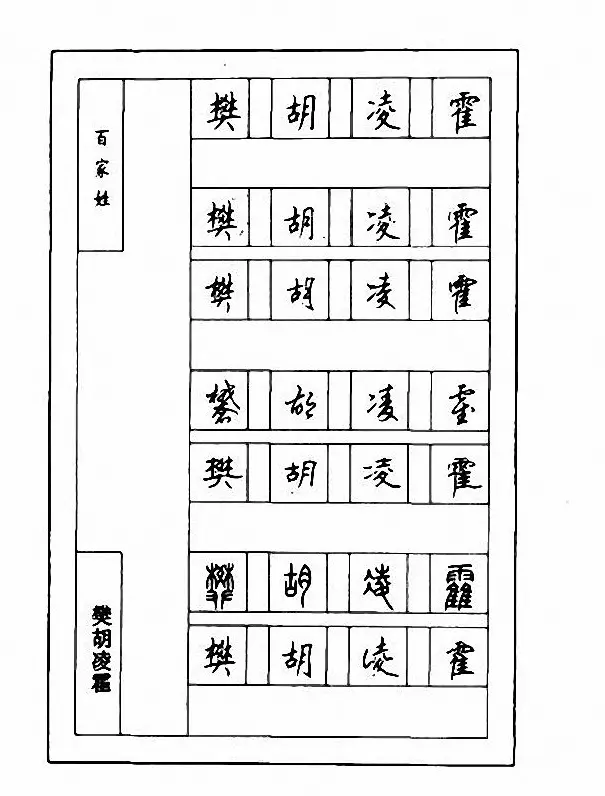 百家姓
樊 胡 凌 霍
樊 胡 凌 霍
樊 胡 凌 霍
樊 胡 凌 霍
樊 胡 凌 霍
樊 胡 凌 霍
樊 胡 凌 霍
樊胡凌霍